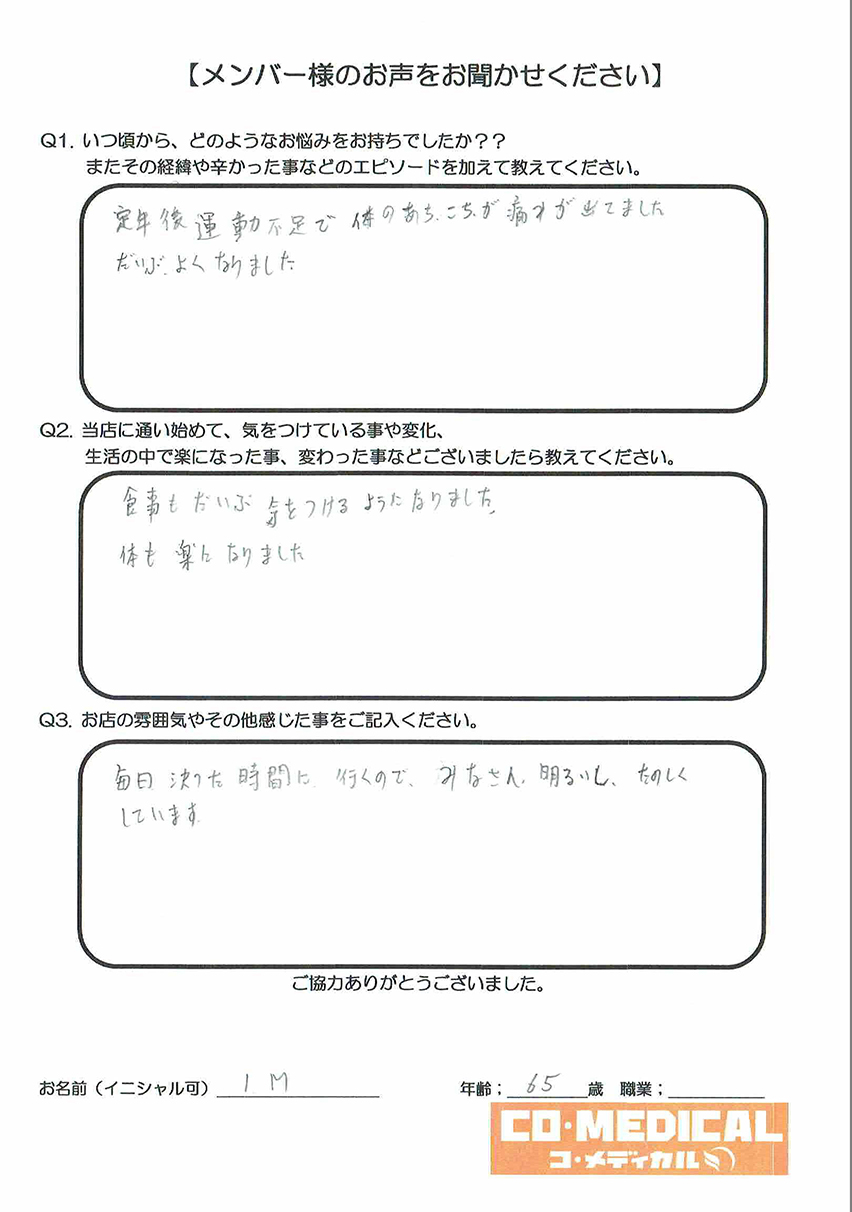 【メンバー様のお声をお聞かせください】
Q1. いつ頃から、どのようなお悩みをお持ちでしたか？？
またその経緯や辛かった事などのエピソードを加えて教えてください。
定年後運動不足で 体のあちこちが痛みが出てました
だいぶよくなりました
Q2. 当店に通い始めて、気をつけている事や変化、
生活の中で楽になった事、変わった事などございましたら教えてください。
食事もだいぶ気をつけるようになりました。
体も楽になりました
Q3. お店の雰囲気やその他感じた事をご記入ください。
毎日決った時間に行くので、みなさん明るいし、たのしく
しています。
ご協力ありがとうございました。
お名前（イニシャル可） I M 年齢； 65 歳 職業；
CO・MEDICAL
コ・メディカル